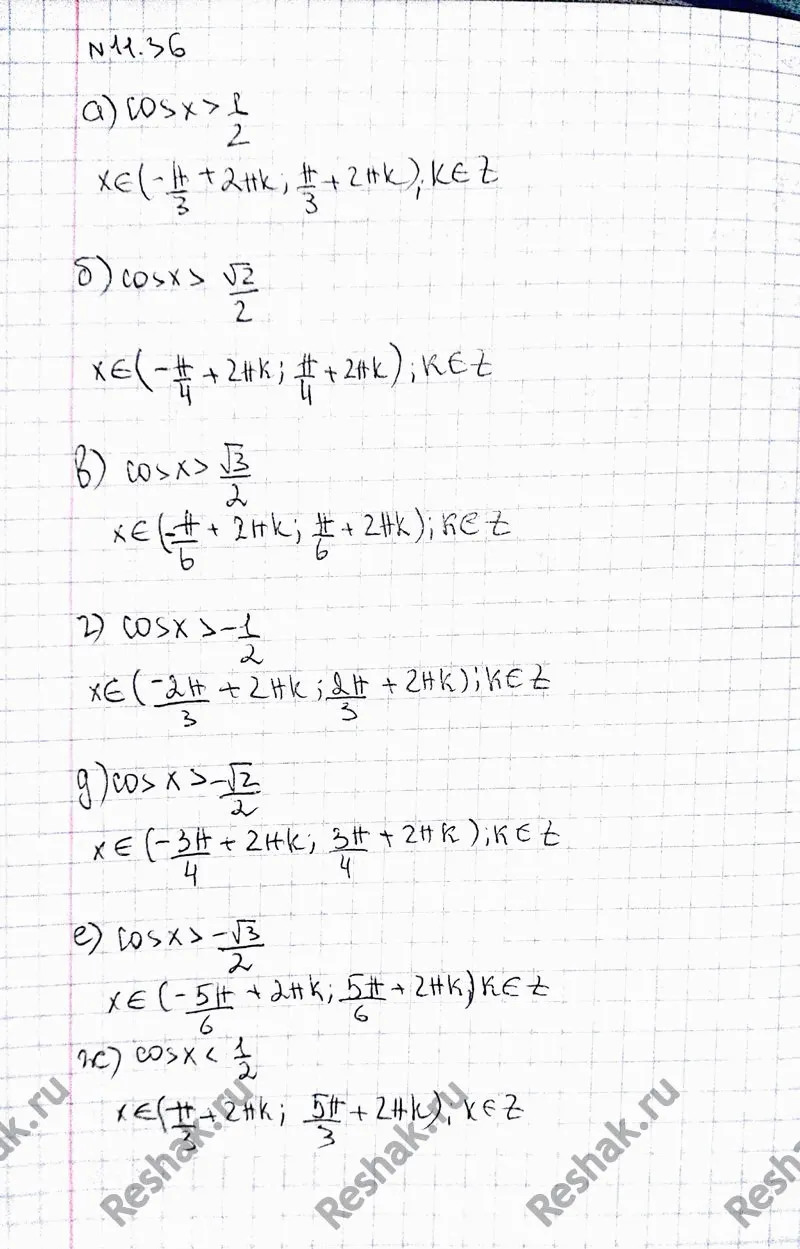 N11.36
а) cosx > 1/2
x∈(-π/3 + 2πk; π/3 + 2πk); k∈Z
б) cosx > √2/2
x∈(-π/4 + 2πk; π/4 + 2πk); k∈Z
в) cosx > √3/2
x∈(-π/6 + 2πk; π/6 + 2πk); k∈Z
г) cosx > -1/2
x∈(-2π/3 + 2πk; 2π/3 + 2πk); k∈Z
д) cosx > -√2/2
x∈(-3π/4 + 2πk; 3π/4 + 2πk); k∈Z
е) cosx > -√3/2
x∈(-5π/6 + 2πk; 5π/6 + 2πk) k∈Z
ж) cosx < 1/2
x∈(π/3 + 2πk; 5π/3 + 2πk); k∈Z
ak.ru Reshak.ru Reshak.ru Reshak.ru Reshak